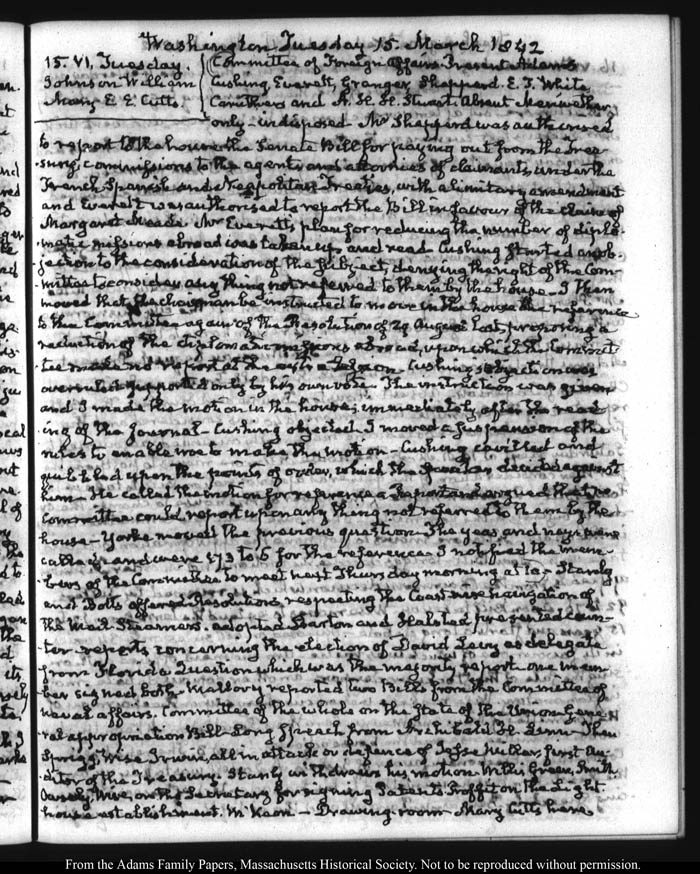 Washington Tuesday 15. March 1842
15. VI. Tuesday.
Johnson William
Mary E. E. Cutts.
Committee of Foreign Affairs. Present Adams
Cushing, Everett, Granger, Shepperd. E. D. White
Caruthers and A. H. H. Stuart. Absent Meriwether
only — indisposed Mr Shepperd was authorised
to report to the house the Senate Bill for paying out from the Trea-
sury, commissions to the agents and attornies of claimants, under the
French, Spanish and Neapolitan Treaties, with a limitary amendment
and Everett was authorised to report the Bill in favour of the claim of
Margaret Meade. Mr Everett's plan for reducing the number of diplo-
matic missions abroad was taken up and read Cushing started an ob-
jection to the consideration of the subject, denying the right of the Com-
mittee to consider any thing not referred to them by the house — I then
moved that the chairman be instructed to move in the house the reference
to the Committee again of the Resolution of 29 August last, proposing a
reduction of the diplomatic missions abroad, upon which the Commit-
tee made no report at the Session Cushing's objection was
overruled supported only by his own vote. The instruction was given
and I made the motion in the house, immediately after the read-
ing of the Journal — Cushing objected. I moved a suspension of the
rules to enable me to make the motion — Cushing cavilled and
quibbled upon the points of order, which the Speaker decided against
him — He called the motion for reference a Report and argued that the
Committee could report upon any thing not referred to them by the
house — Yorke moved the previous question — The yeas and nays were
called and were 173 to 5 for the reference. I notified the mem-
bers of the Committee to meet next Thursday morning at 10 — Stanly
and Botts offered Resolutions respecting the Coastwise navigation of
the Mail Steamers. adopted Barton and Halsted presented coun-
ter reports concerning the election of David Levy as delegate
from Florida Question which was the majority report — one mem-
ber signed both. Mallory reported two Bills from the Committee of
naval affairs. Committee of the whole on the State of the Union Gene-
ral appropriation Bill — Long Speach from Archibald L. Linn — Then
Sprigg, Wise, Irwin, all in attack or defence of Jesse Miller, first Au-
ditor of the Treasury. Stanly withdraws his motion Willis Green, Smith
Ousely, Wise, on the Secretary for signing Patents Proffit on the Light
house establishment. McKeon — Drawing-room — Mary Cutts here.
From the Adams Family Papers, Massachusetts Historical Society. Not to be reproduced without permission.